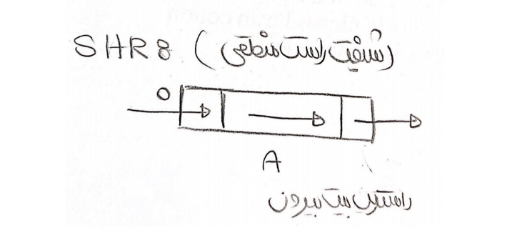 SHR8 (شیفت راست منطقی)
0
A
راست‌ترین بیت بیرون